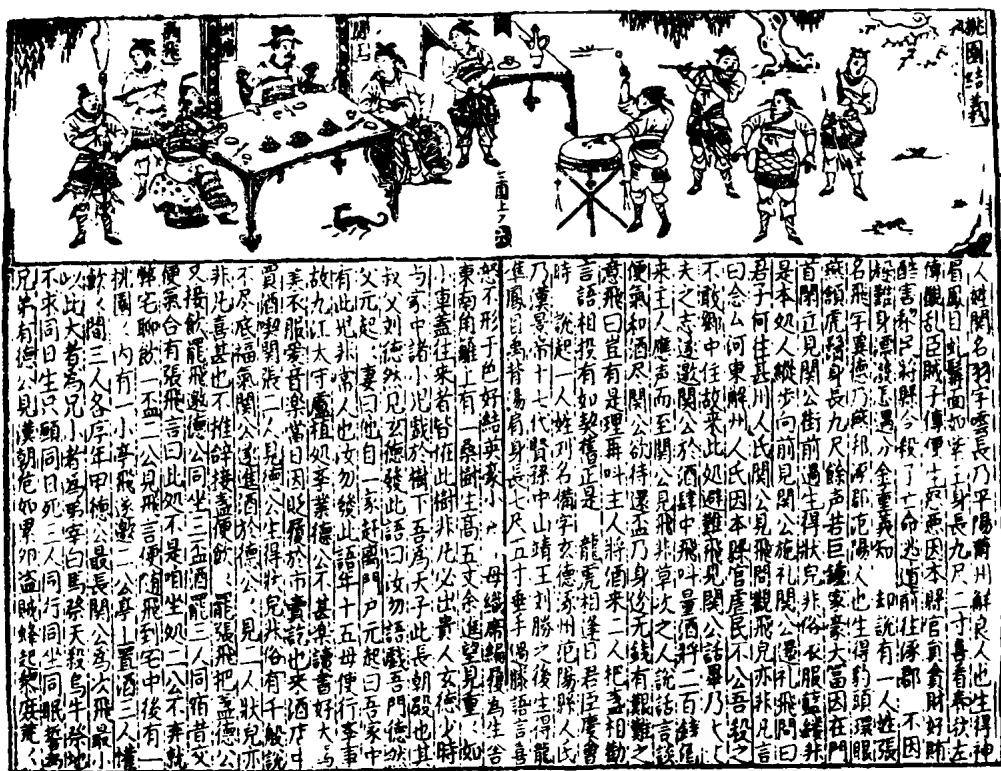 桃園結義
張飛
關公
三國上
人姓関名羽字雲長乃平陽蒲州解良人也生得神
眉鳳目虬髯面如紫玉身長九尺二寸喜看春秋左
傳觀乱臣賊子傳便生怒惡因本縣官員貪財好賄
酷害黎民將縣令殺了亡命逃遁前往涿郡 不因
躱難身漂泊怎遇分金重義知 却說有一人姓張
名飛字翼德乃燕邦涿郡范陽人也生得豹頭環眼
燕頷虎鬚身長九尺餘声若巨鐘家豪大富因在門
首閑立見関公街前過生得狀皃非俗衣服藍縷非
是本処人縱步向前見関公施礼関公還礼飛問曰
君子何往甚州人氏関公見飛問觀飛皃亦非凡言
曰念厶河東解州人氏因本縣官虐民不公吾殺之
不敢鄉中住故來此処避難飛見関公話畢乃大丈
夫之志遂邀関公於酒肆中飛叫量酒將二百錢酒
來主人應声而至関公見飛非草次之人說話言談
便氣和酒尽関公欲待還盃乃身邊无錢有艱難之
意飛曰豈有是理再叫主人將酒來二人把盞相勸
言語相投有如契舊正是 龍虎相逢日君臣慶會
時 說起一人姓刘名備字玄德涿州范陽縣人氏
乃漢景帝十七代賢孫中山靖王刘勝之後生得龍
準鳳目禹背湯肩身長七尺五寸垂手過膝語言喜
怒不形于色好結英豪少 母織席編履為生舍
東南角籬上有一桑樹生高五丈余進望見重〻如
小車盖往來者皆怪此樹非凡必出貴人玄德少時
与家中諸小兒戯於樹下吾為天子此長朝殿也其
叔父刘德然見玄德發此語曰汝勿語戯吾門德然
父元起〻妻曰他自一家赶離門户元起曰吾家中
有此兒非常人也汝勿發此語年十五母使行李事
故九江太守盧植処李業德公不甚樂讀書好犬馬
美衣服愛音樂當日因販履於市賣訖也來酒店中
買酒喫関張二人見德公生得狀皃非俗有千般說
不尽底福氣関公遂進酒於德公〻見二人狀皃亦
非凡喜甚也不推辞接盞便飲〻罷張飛把盞德公
又接飲罷飛邀德公同坐三盃酒罷三人同宿昔交
便氣合有張飛言曰此処不是咱坐処二公不弃就
弊宅聊飲一盃二公見飛言便隨飛到宅中後有一
桃園〻內有一小亭飛遂邀二公亭上置酒三人懽
飲〻間三人各序年甲德公最長関公為次飛最小
以此大者為兄小者為弟宰白馬祭天殺烏牛祭地
不求同日生只願同日死三人同行同坐同眠誓為
兄弟有德公見漢朝危如累卵盜賊蜂起黎庶荒〻